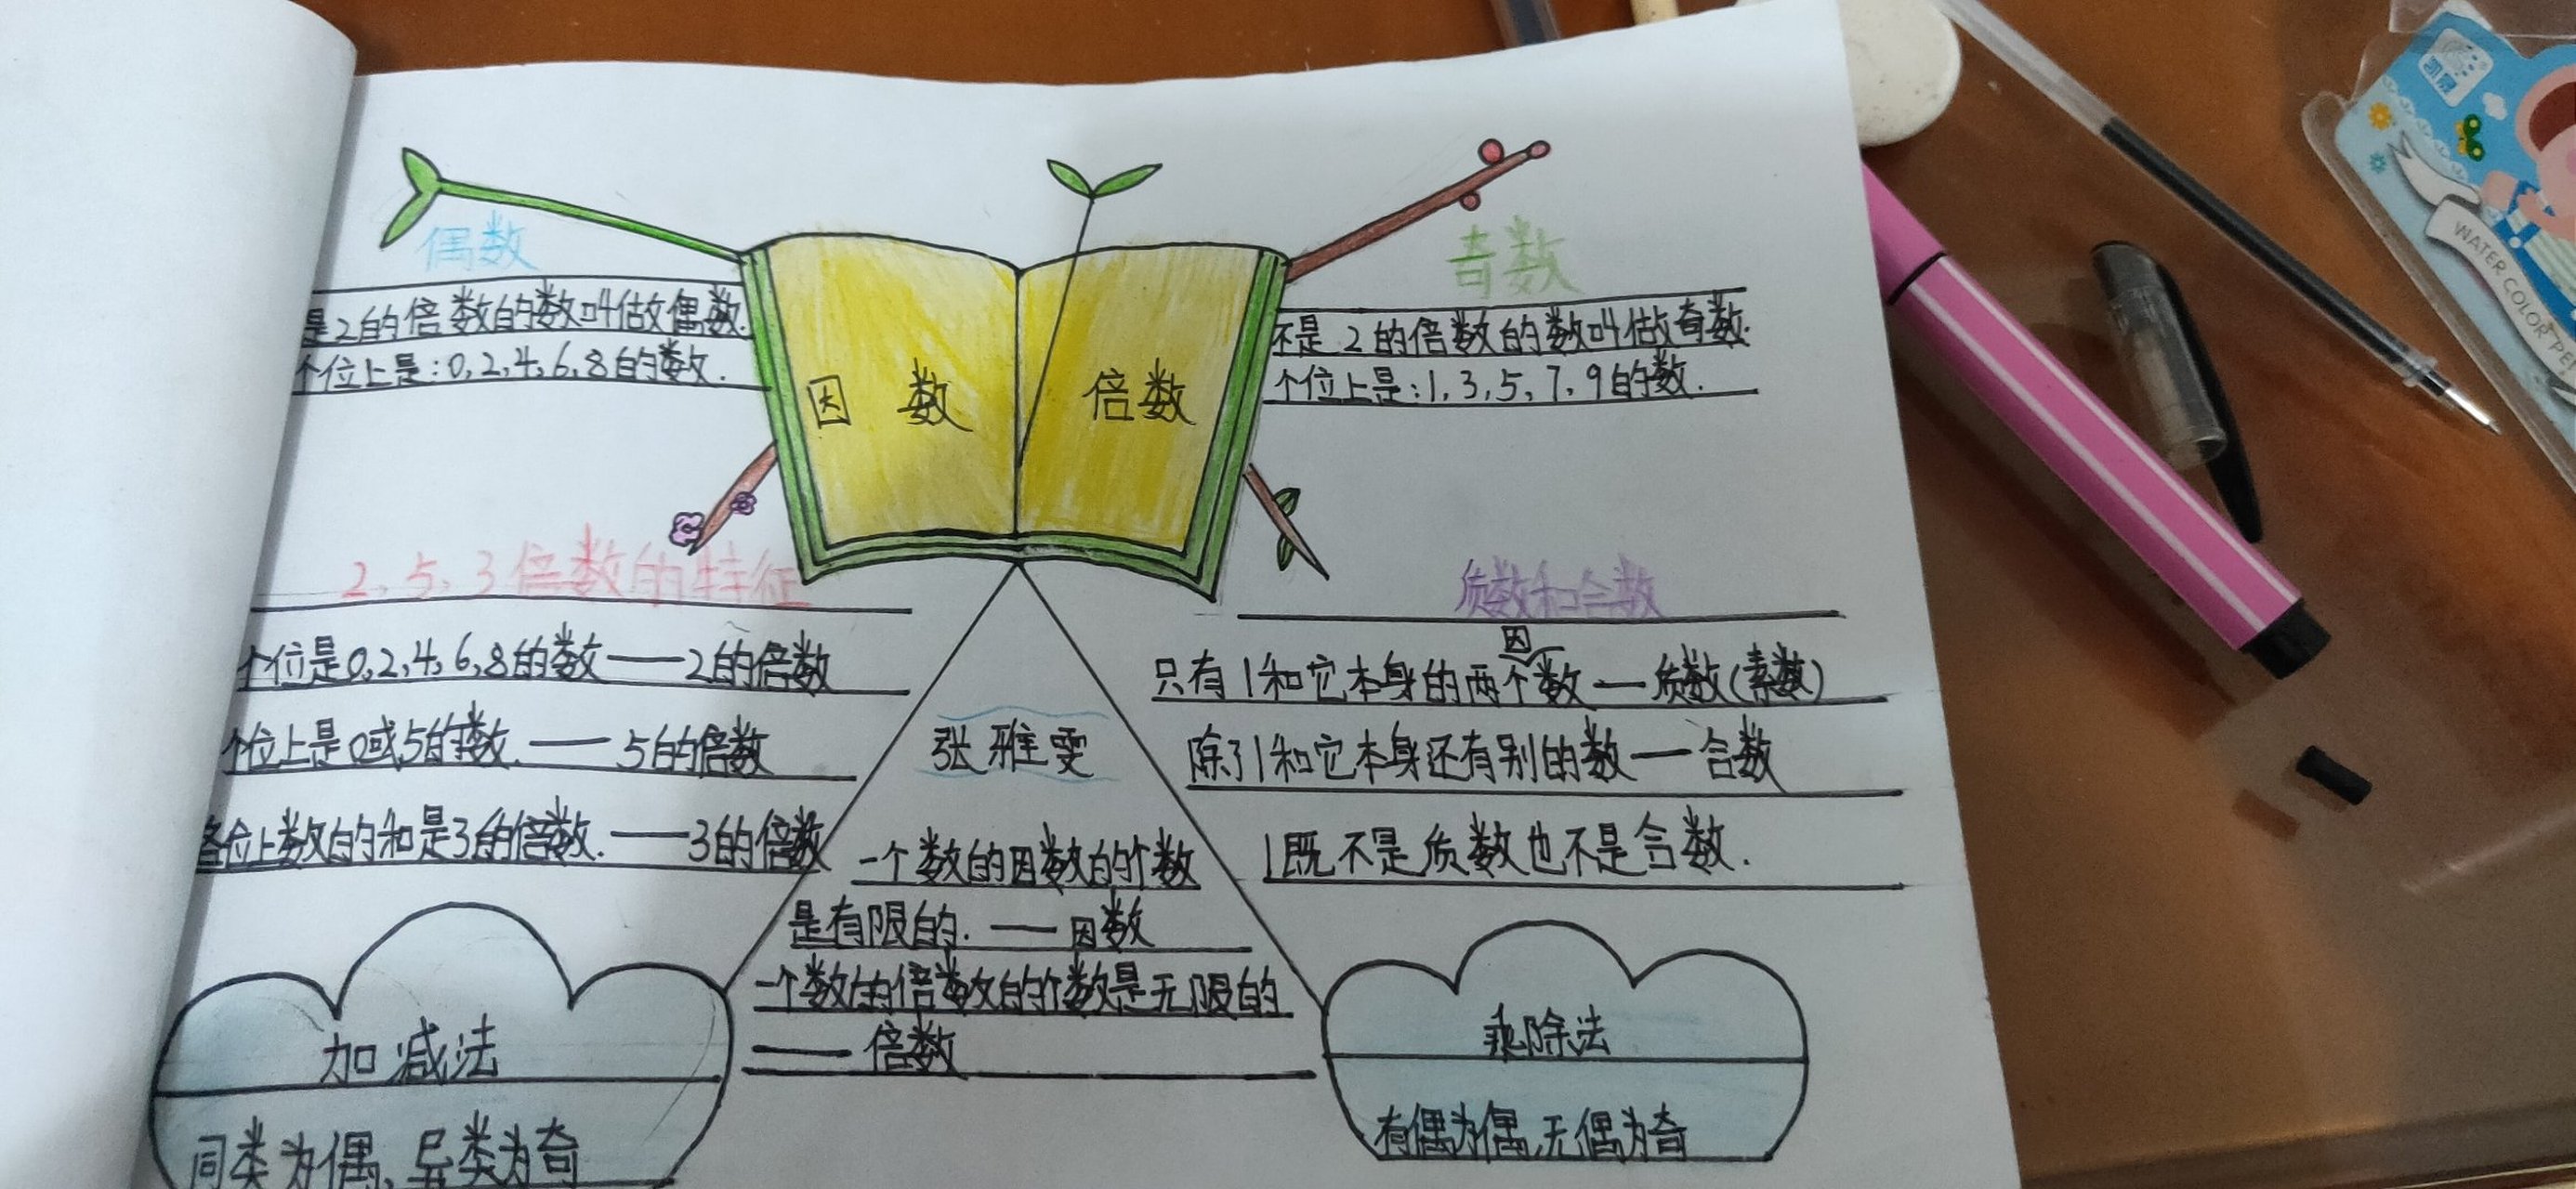 偶数
是2的倍数的数叫做偶数.
个位上是:0,2,4,6,8的数.
因数
倍数
奇数
不是2的倍数的数叫做奇数.
个位上是:1,3,5,7,9的数.
2、5、3倍数的特征
个位是0,2,4,6,8的数——2的倍数
个位上是0或5的数.——5的倍数
各位上数的和是3的倍数.——3的倍数
质数和合数
因
只有1和它本身的两个数——质数(素数)
除了1和它本身还有别的数——合数
1既不是质数也不是合数.
张雅雯
一个数的因数的个数
是有限的.——因数
一个数的倍数的个数是无限的
——倍数
加减法
同类为偶,异类为奇
乘除法
有偶为偶,无偶为奇
WATER COLOR PE